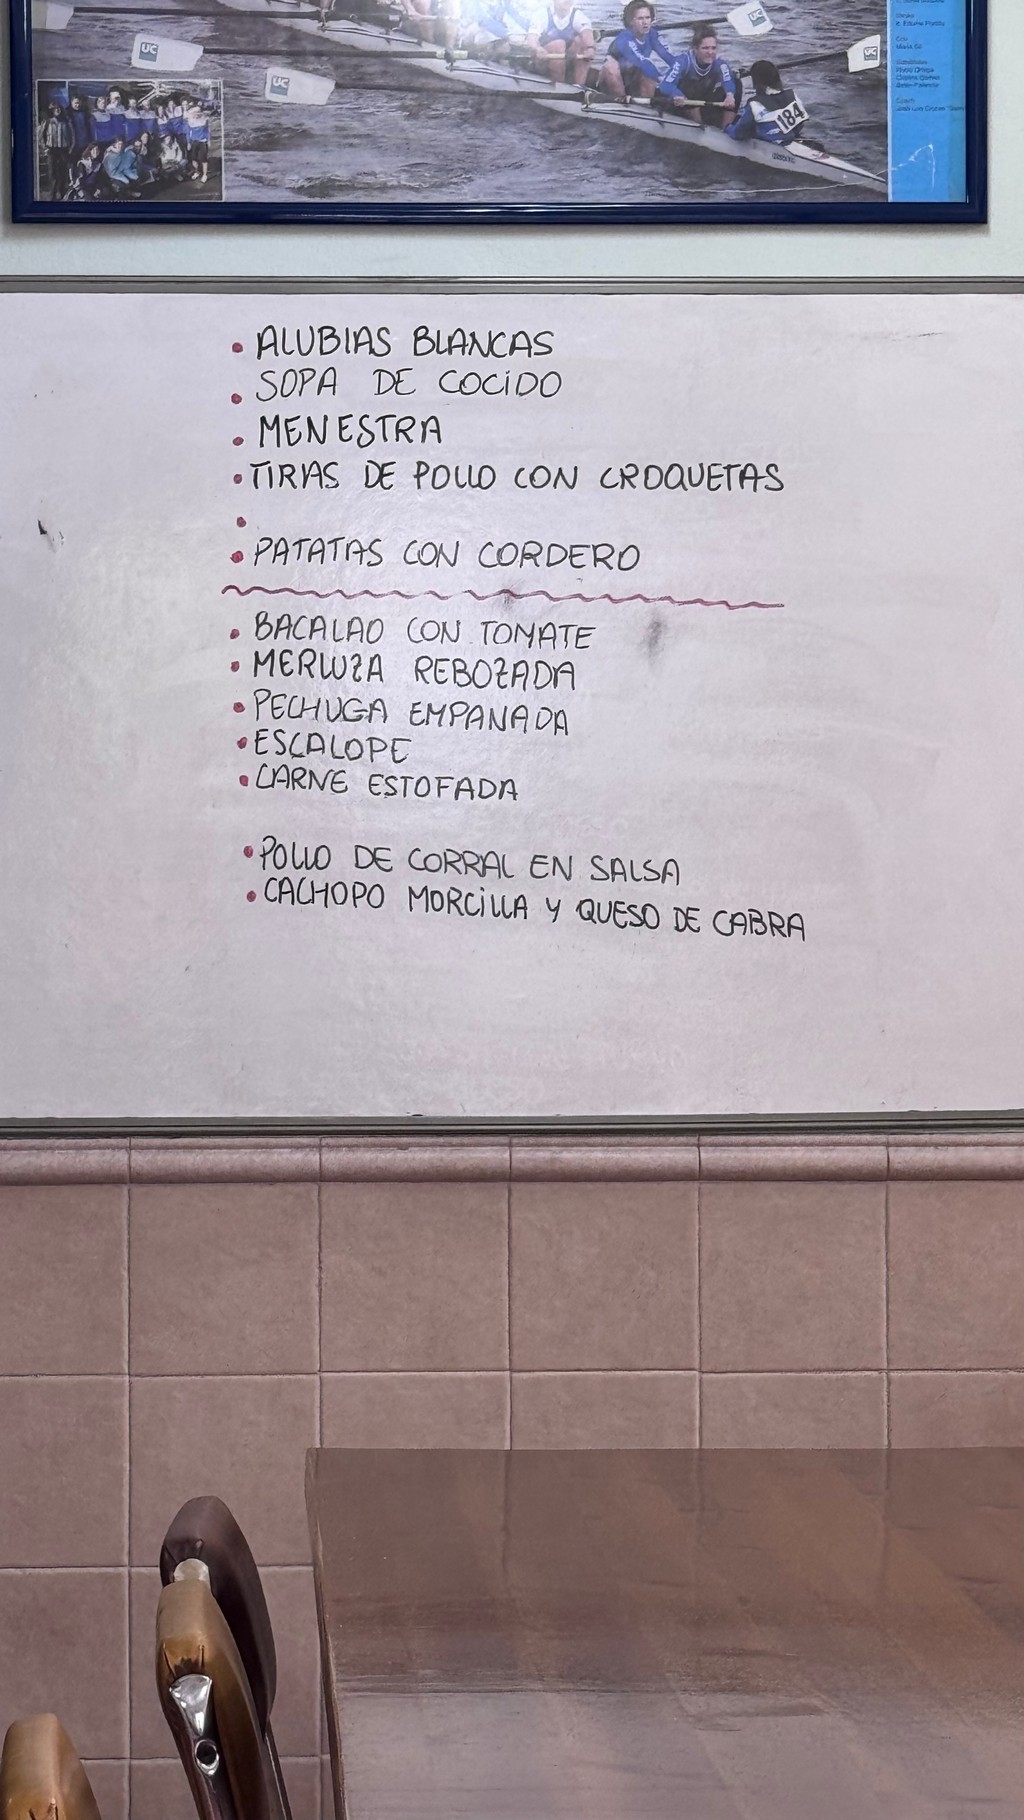 UC
UC
UC
UC
184
• ALUBIAS BLANCAS
• SOPA DE COCIDO
• MENESTRA
• TIRAS DE POLLO CON CROQUETAS
•
• PATATAS CON CORDERO
• BACALAO CON TOMATE
• MERLUZA REBOZADA
• PECHUGA EMPANADA
• ESCALOPE
• CARNE ESTOFADA
• POLLO DE CORRAL EN SALSA
• CACHOPO MORCILLA Y QUESO DE CABRA